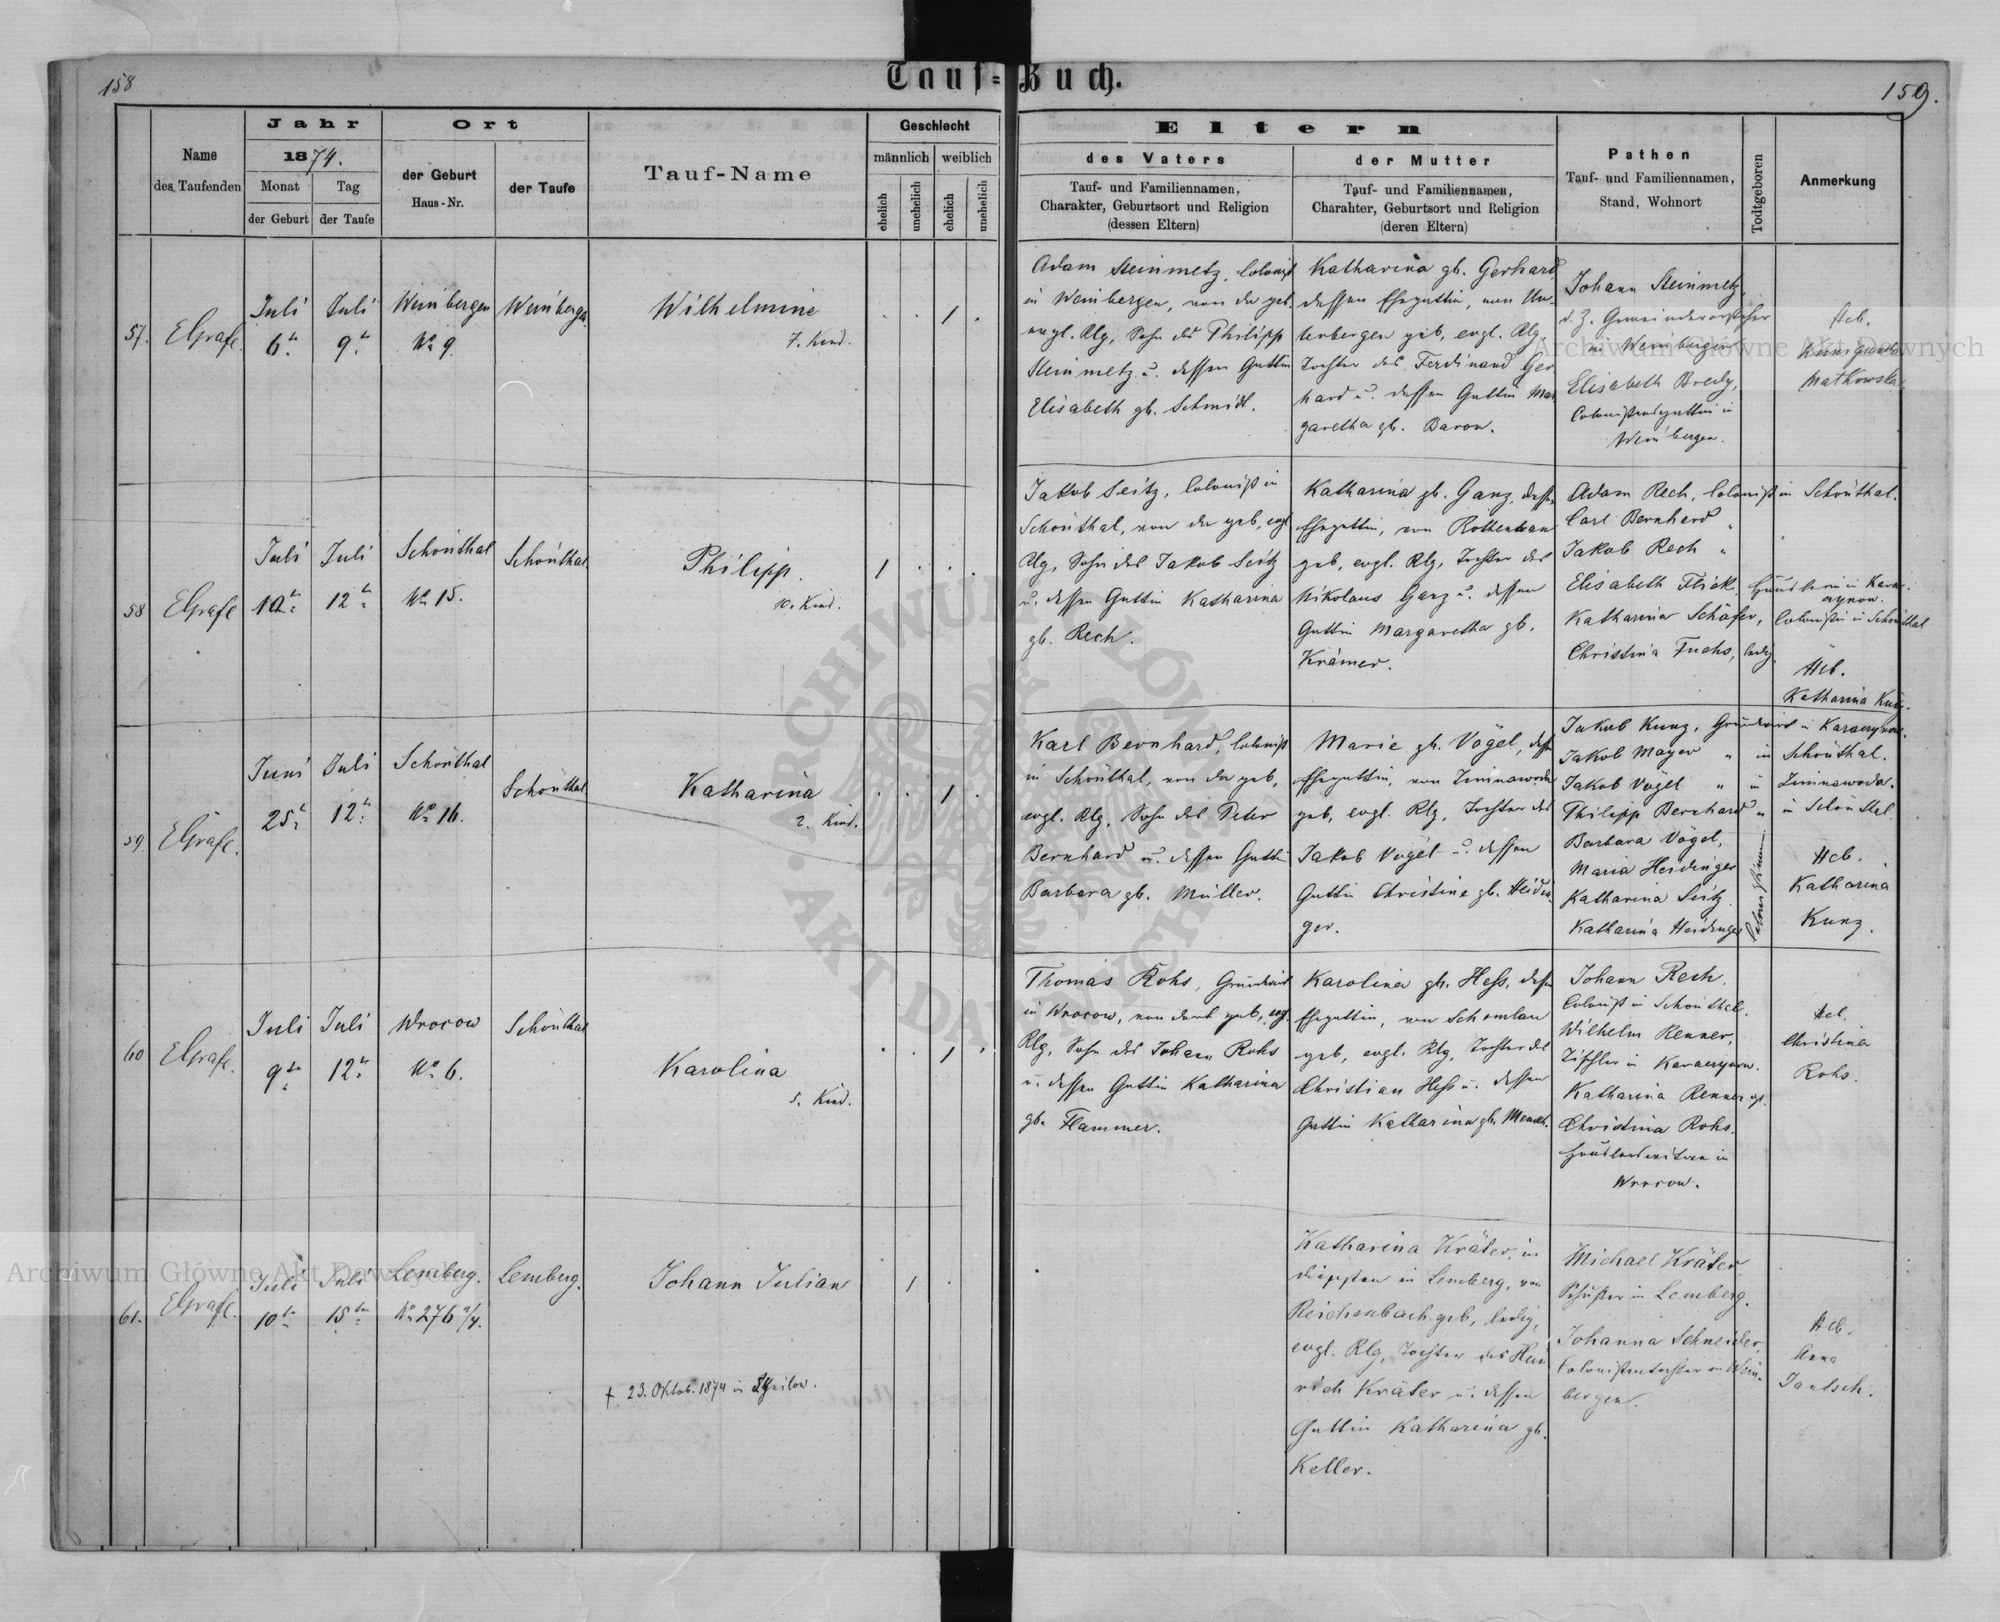 158
Tauf-Buch.
159.
Name
des Taufenden
Jahr
1874.
Monat
Tag
der Geburt
der Taufe
Ort
der Geburt
Haus-Nr.
der Taufe
Tauf-Name
Geschlecht
männlich
weiblich
ehelich
unehelich
ehelich
unehelich
Eltern
des Vaters
Tauf- und Familiennamen,
Charakter, Geburtsort und Religion
(dessen Eltern)
der Mutter
Tauf- und Familiennamen,
Charahter, Geburtsort und Religion
(deren Eltern)
Pathen
Tauf- und Familiennamen,
Stand, Wohnort
Todtgeboren
Anmerkung
57.
EGrafe.
Juli
6t.
Juli
9t.
Weinbergen
No 9.
Weinbergen
Wilhelmine
7. Kind.
1
Adam Steinmetz, Colonist
in Weinbergen, von da geb.
evgl. Rlg, Sohn des Philipp
Steinmetz u. dessen Gattin
Elisabeth gb. Schmidt.
Katharina gb. Gerhard
dessen Ehegattin, von Un-
terbergen geb, evgl. Rlg,
Tochter des Ferdinand Ger
hard u. dessen Gattin Mar
garetha gb. Baron.
Johann Steinmetz,
d. Z. Gemeindevorsteher
in Weinbergen
Elisabeth Bredy,
Colonistensgattin in
Weinbergen.
Heb.
Kunigunde
Matkowska
58
EGrafe
Juli
10t.
Juli
12t.
Schönthal
No 15.
Schönthal
Philipp.
10. Kind.
1
Jakob Seitz, Colonist in
Schönthal, von da geb, evgl
Rlg, Sohn des Jakob Seitz
u. dessen Gattin Katharina
gb. Rech.
Katharina gb. Ganz, dessen
Ehegattin, von Rottenhan
geb, evgl. Rlg, Tochter des
Nikolaus Ganz u. dessen
Gattin Margaretha gb.
Krämer.
Adam Rech, Colonist in Schönthal.
Carl Bernhard "
Jakob Rech "
Elisabeth Flick,
Katharina Schäfer, Colonistin in Schönthal
Christina Fuchs, ledig
Heb.
Katharina Kunz.
59
EGrafe.
Juni
25t.
Juli
12t.
Schönthal
No 16.
Schönthal
Katharina
2. Kind.
1
Karl Bernhard, Colonist
in Schönthal, von da geb,
evgl. Rlg, Sohn des Peter
Bernhard u. dessen Gattin
Barbara gb. Müller.
Marie gb. Vögel, dessen
Ehegattin, von Zimnawoda
geb, evgl. Rlg, Tochter des
Jakob Vögel u. dessen
Gattin Christine gb. Heidin
ger.
Jakob Kunz, Grundwirt in Karaczynow.
Jakob Mayer " in Schönthal.
Jakob Vögel " in Zimnawoda.
Philipp Bernhard " in Schönthal
Barbara Vögel,
Maria Heidinger
Katharina Seitz
Katharina Heidinger
Heb.
Katharina
Kunz.
60
EGrafe.
Juli
9te.
Juli
12t.
Wrocow
No 6.
Schönthal
Karolina
5. Kind.
1
Thomas Rohs, Grundwirt
in Wrocow, von dort geb, evgl.
Rlg, Sohn des Johann Rohs
u. dessen Gattin Katharina
gb. Flammer.
Karolina gb. Heß, dessen
Ehegattin, von Schomlau
geb, evgl. Rlg, Tochter des
Christian Heß u. dessen
Gattin Katharina gb.
Johann Rech,
Colonist in Schönthal.
Wilhelm Renner,
Tischler in Karaczynow.
Katharina Renner
Christina Rohs,
in
Wrocow.
Heb.
Christina
Rohs.
61.
EGrafe.
Juli
10te
Juli
15te
Lemberg.
No 276 2/4.
Lemberg.
Johann Julian
1
† 23. Oktob. 1874 in
Katharina Kräter, in
diensten in Lemberg, von
Reichenbach geb, ledig,
evgl. Rlg, Tochter des Hein
rich Kräter u. dessen
Gattin Katharina gb.
Keller.
Michael Kräter,
Schuster in Lemberg.
Johanna Schneider,
Colonistentochter in Wein-
bergen.
Heb.
Anna
Jantsch.
Archiwum Główne Akt Dawnych
Archiwum Główne Akt Dawnych
ARCHIWUM GŁÓWNE · AKT DAWNYCH